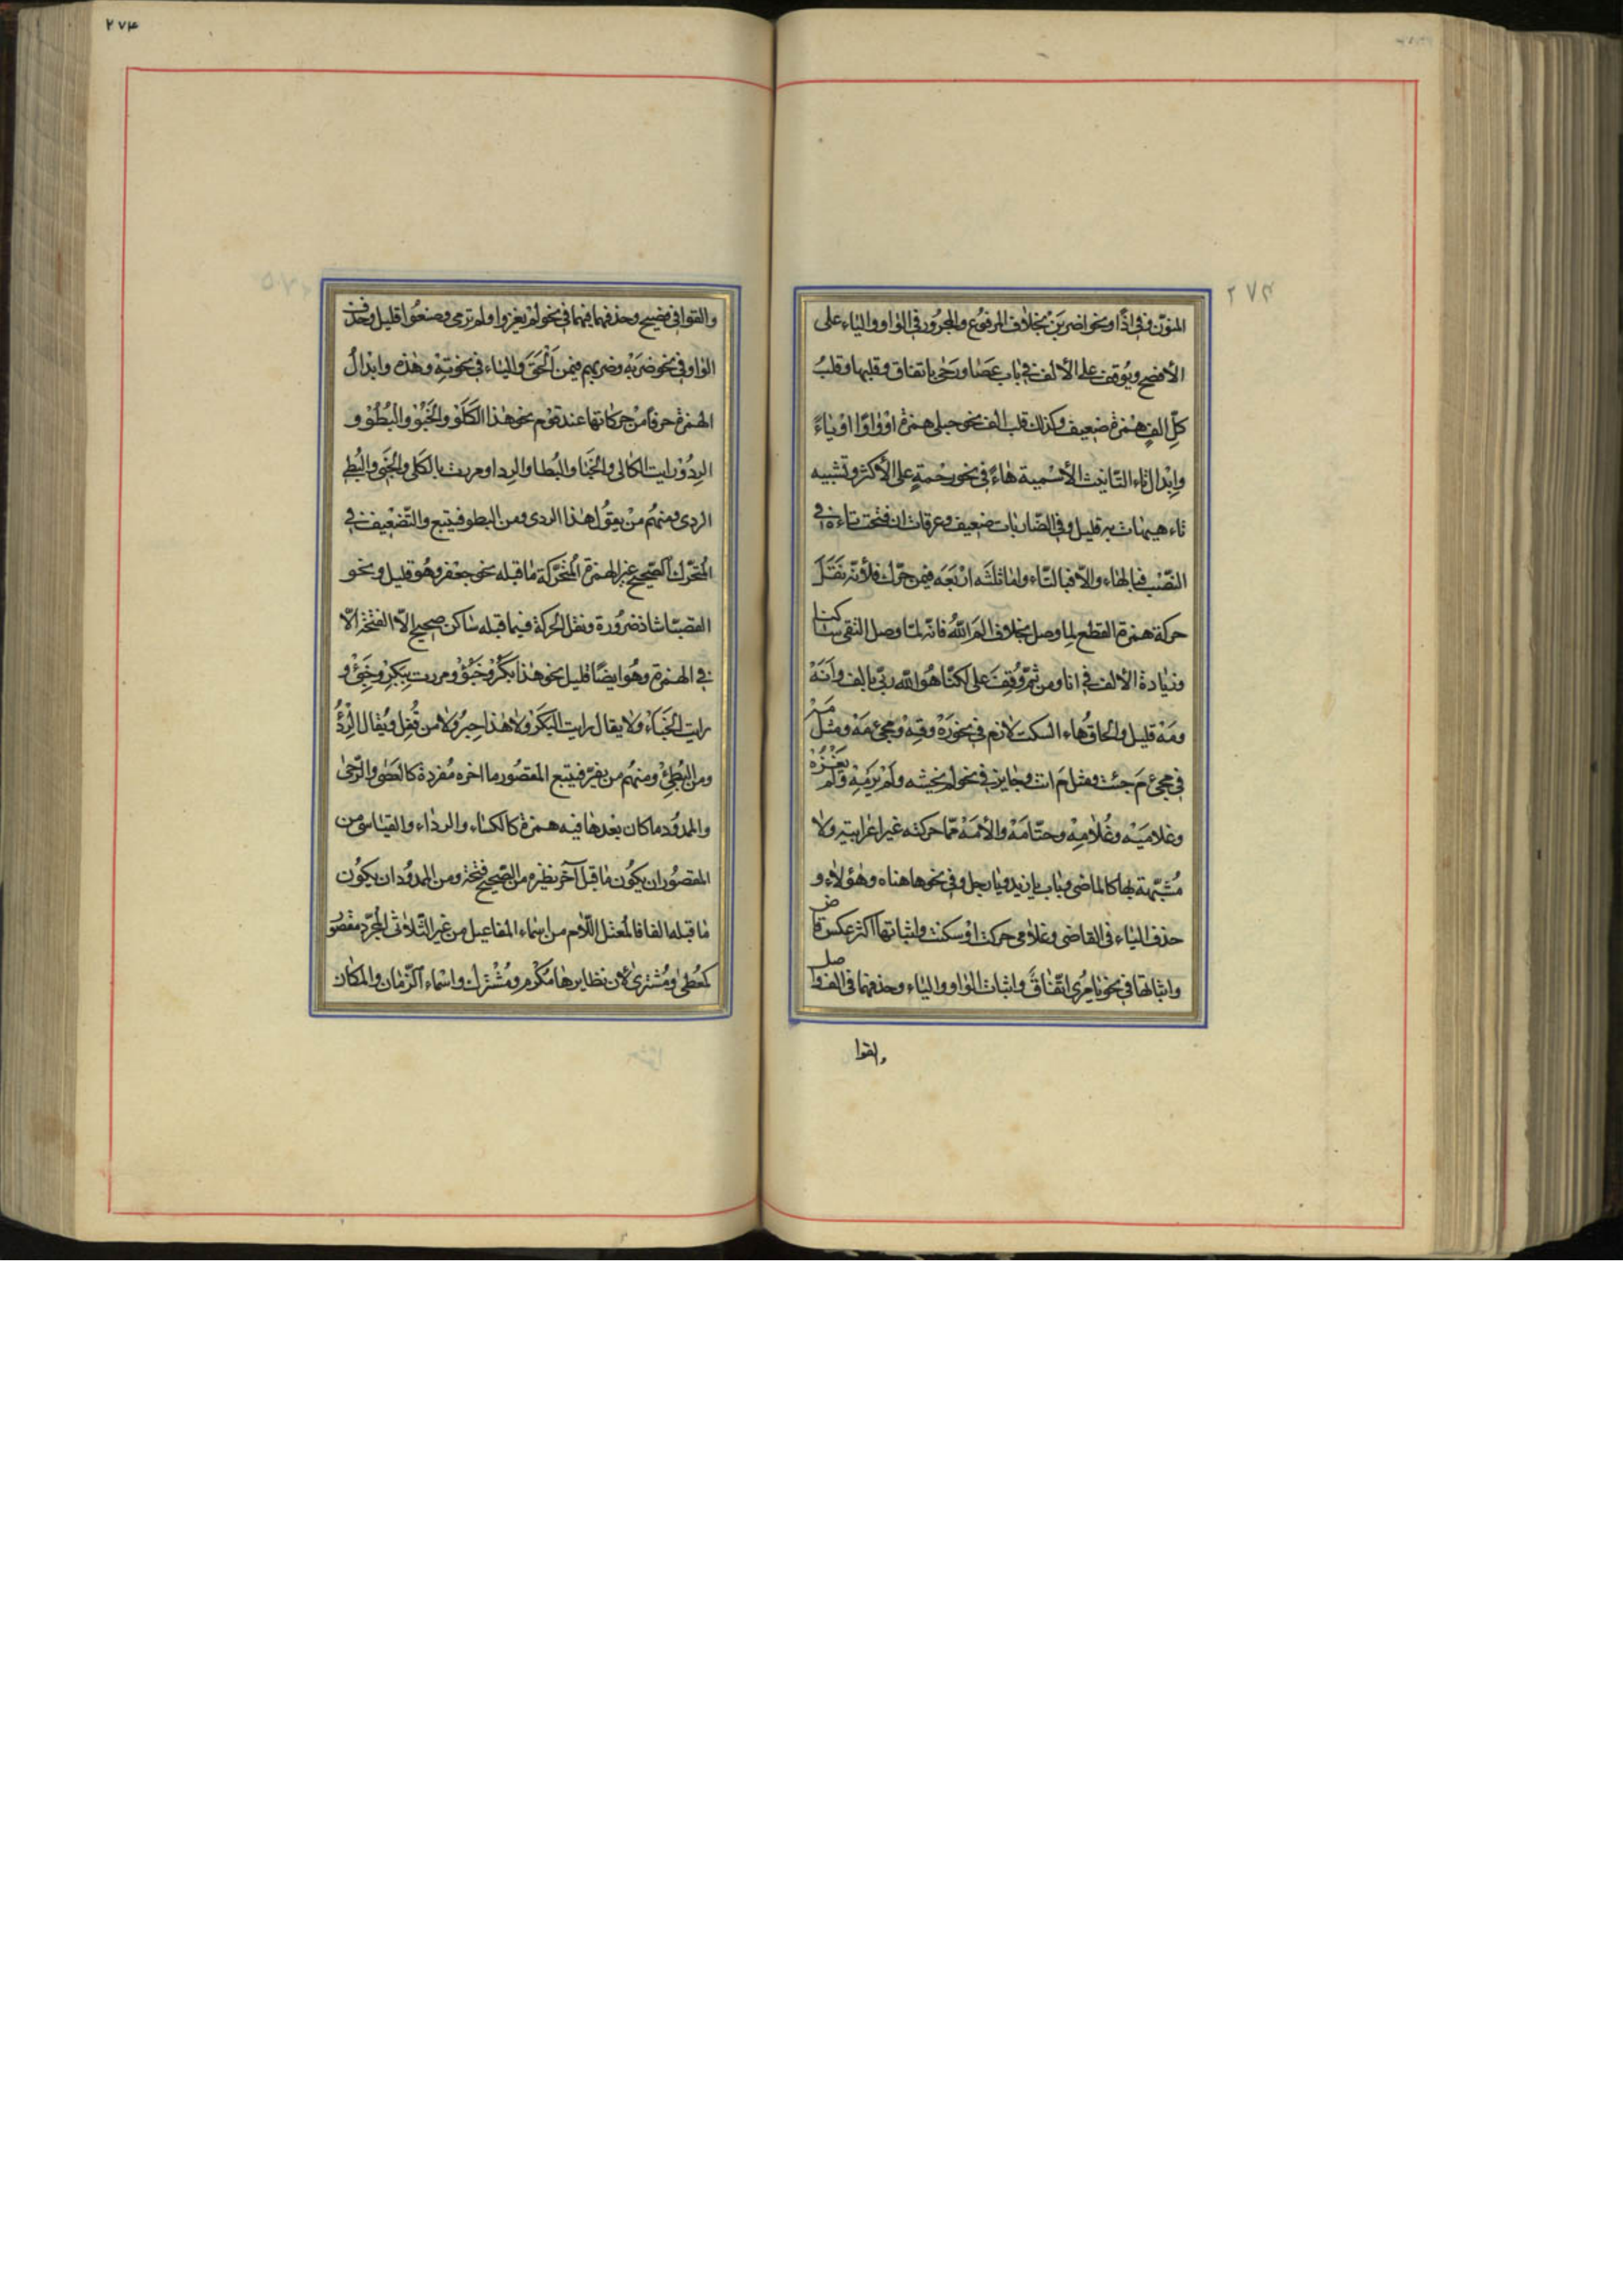 ۲۷۴
المنوّن وفی اذًا ونحو اضربَنْ بخلاف المرفوع والمجرور فی الواو والیاء علی
الأفصح ویُوقف علی الألف فی باب عَصًا ورَحًی باتفاق وقلبها وقلبُ
کلّ الفٍ همزة ضعیف وکذلك قلب الف نحو حبلی همزة اوْ واوًا اوْ یاءً
وابْدال تاء التّانیث الأسْمیة هاءً فی نحو رحْمةٍ علی الأکثر وتشبیه
تاء هیهات به قلیل وفی الضّاربات ضعیف وعرقات ان فتحت تاءه فی
النّصْب فبالهاء والّا فبالتّاء وامّا ثلثَه ارْبَعَه فیمن حرّك فلأنّه نَقَلَ
حرکة همزة القطع لما وصل بخلاف الم اللّه فانّه لمّا وصل التقی ساکنا
وزیادة الألف فی انا ومن ثمّ وُقِفَ علی لکنّا هُوَ اللّه ربّی بالف وأنَهْ
ومَهْ قلیل والحاقُ هاء السکت لازم فی نحو رَهْ وقِهْ ومجیء مَهْ ومثل مَهْ
فی مجیء مَ جئت ومثل مَ انت وجایز فی نحو لم یخشه ولَمْ یرمِهْ ولم یغْزُهْ
وغلامیَهْ وغُلامِهْ وحتّامَهْ والأمَهْ ممّا حرکته غیر اعرابیّة ولا
مُشبّهة بها کالماضی وباب یا زید ویا رجل وفی نحو هاهناه وهؤلاء و
حذف الیاء فی القاضی وغلامی حرکت اوْ سکنت واثباتها اکثر عکس قاض
واثباتها فی نحو یا مُرِی اتّفاقٌ واثبات الواو والیاء وحذفهما فی الفواصل
والقوا
۲۷۴
والقوافی فصیح وحذفهما فیهما فی نحو لم یغزوا ولم ترمی وصنعُوا قلیل وحذف
الواو فی نحو ضربَهْ وضربهم فیمن اَلْحَقَ والیاء فی نحو تِهْ وهذه وابْدالُ
الهمزة حرفًا من حرکاتها عند قوْم نحو هذا الکَلَوْ والخَبُوْ والْبُطُوْ و
الرِدُوْ رایت الکلا والخَبا والبُطا والرِدا ومررت بالکلی والخبِی والبُطِی
الردی ومنهُم منْ یقول هذا الردی ومن البطو فیتبع والتّضْعیف فی
المتحرّك الصّحیح غیر الهمزة المُتَحرّکة ما قبله نحو جعْفر وهُو قلیل ونحو
القصبّا شاذ ضرُورة ونقل الحرکة فیما قبله ساکن صحیح الّا الفتْحة الّا
فی الهمزة وهُو ایضًا قلیل نحو هذا بَکُرْ وخَبُؤْ ومررت بِبَکِرْ وخَبِئْ و
رایت الخَبَأْ ولا یقال رایت البَکَرْ ولا هذا حِبُرْ ولا من قُفِلْ ویُقال الْرِدُؤْ
ومن البُطِئْ ومنهُم من یفرّ فیتبع المقصُور ما اخره مُفردة کالعَصَی والرّحی
والممدُود ما کان بعْدها فیه همزة کالکساء والرداء والقیاسی من
المقصُور ان یکُون ما قبل آخر نظیره من الصّحیح فتْحة ومن الممدُود ان یکُون
ما قبله الفا فالمُعْتل اللّام من اسْماء المفاعیل من غیر الثّلاثی المجرّد مقْصُور
کمعُطیً ومُشتریً لأن نظایرها مُکْرم ومُشْترك واسْماء الزّمان والمکان